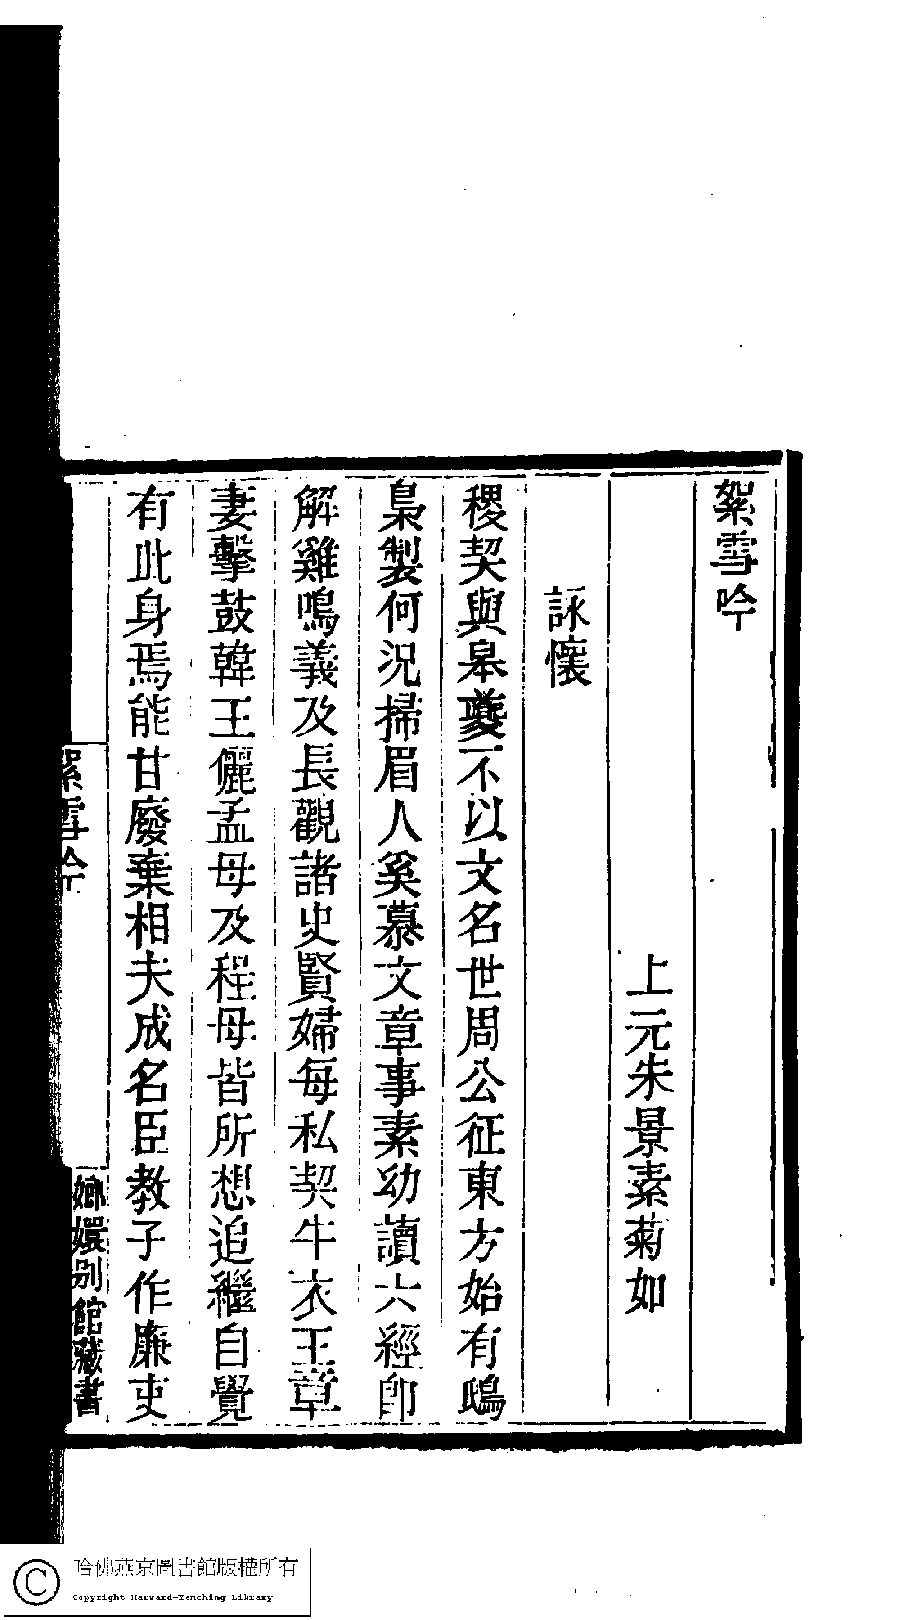 絮雪吟
上元朱景素菊如
詠懷
稷契與皋夔不以文名世周公征東方始有鴟
梟製何況掃眉人奚慕文章事素幼讀六經即
解雞鳴義及長觀諸史賢婦每私契牛衣王章
妻擊鼓韓王儷孟母及程母皆所想追繼自覺
有此身焉能甘廢棄相夫成名臣教子作廉吏
絮雪吟
嫏嬛別館藏書
哈佛燕京圖書館版權所有
Copyright Harvard-Yenching Library